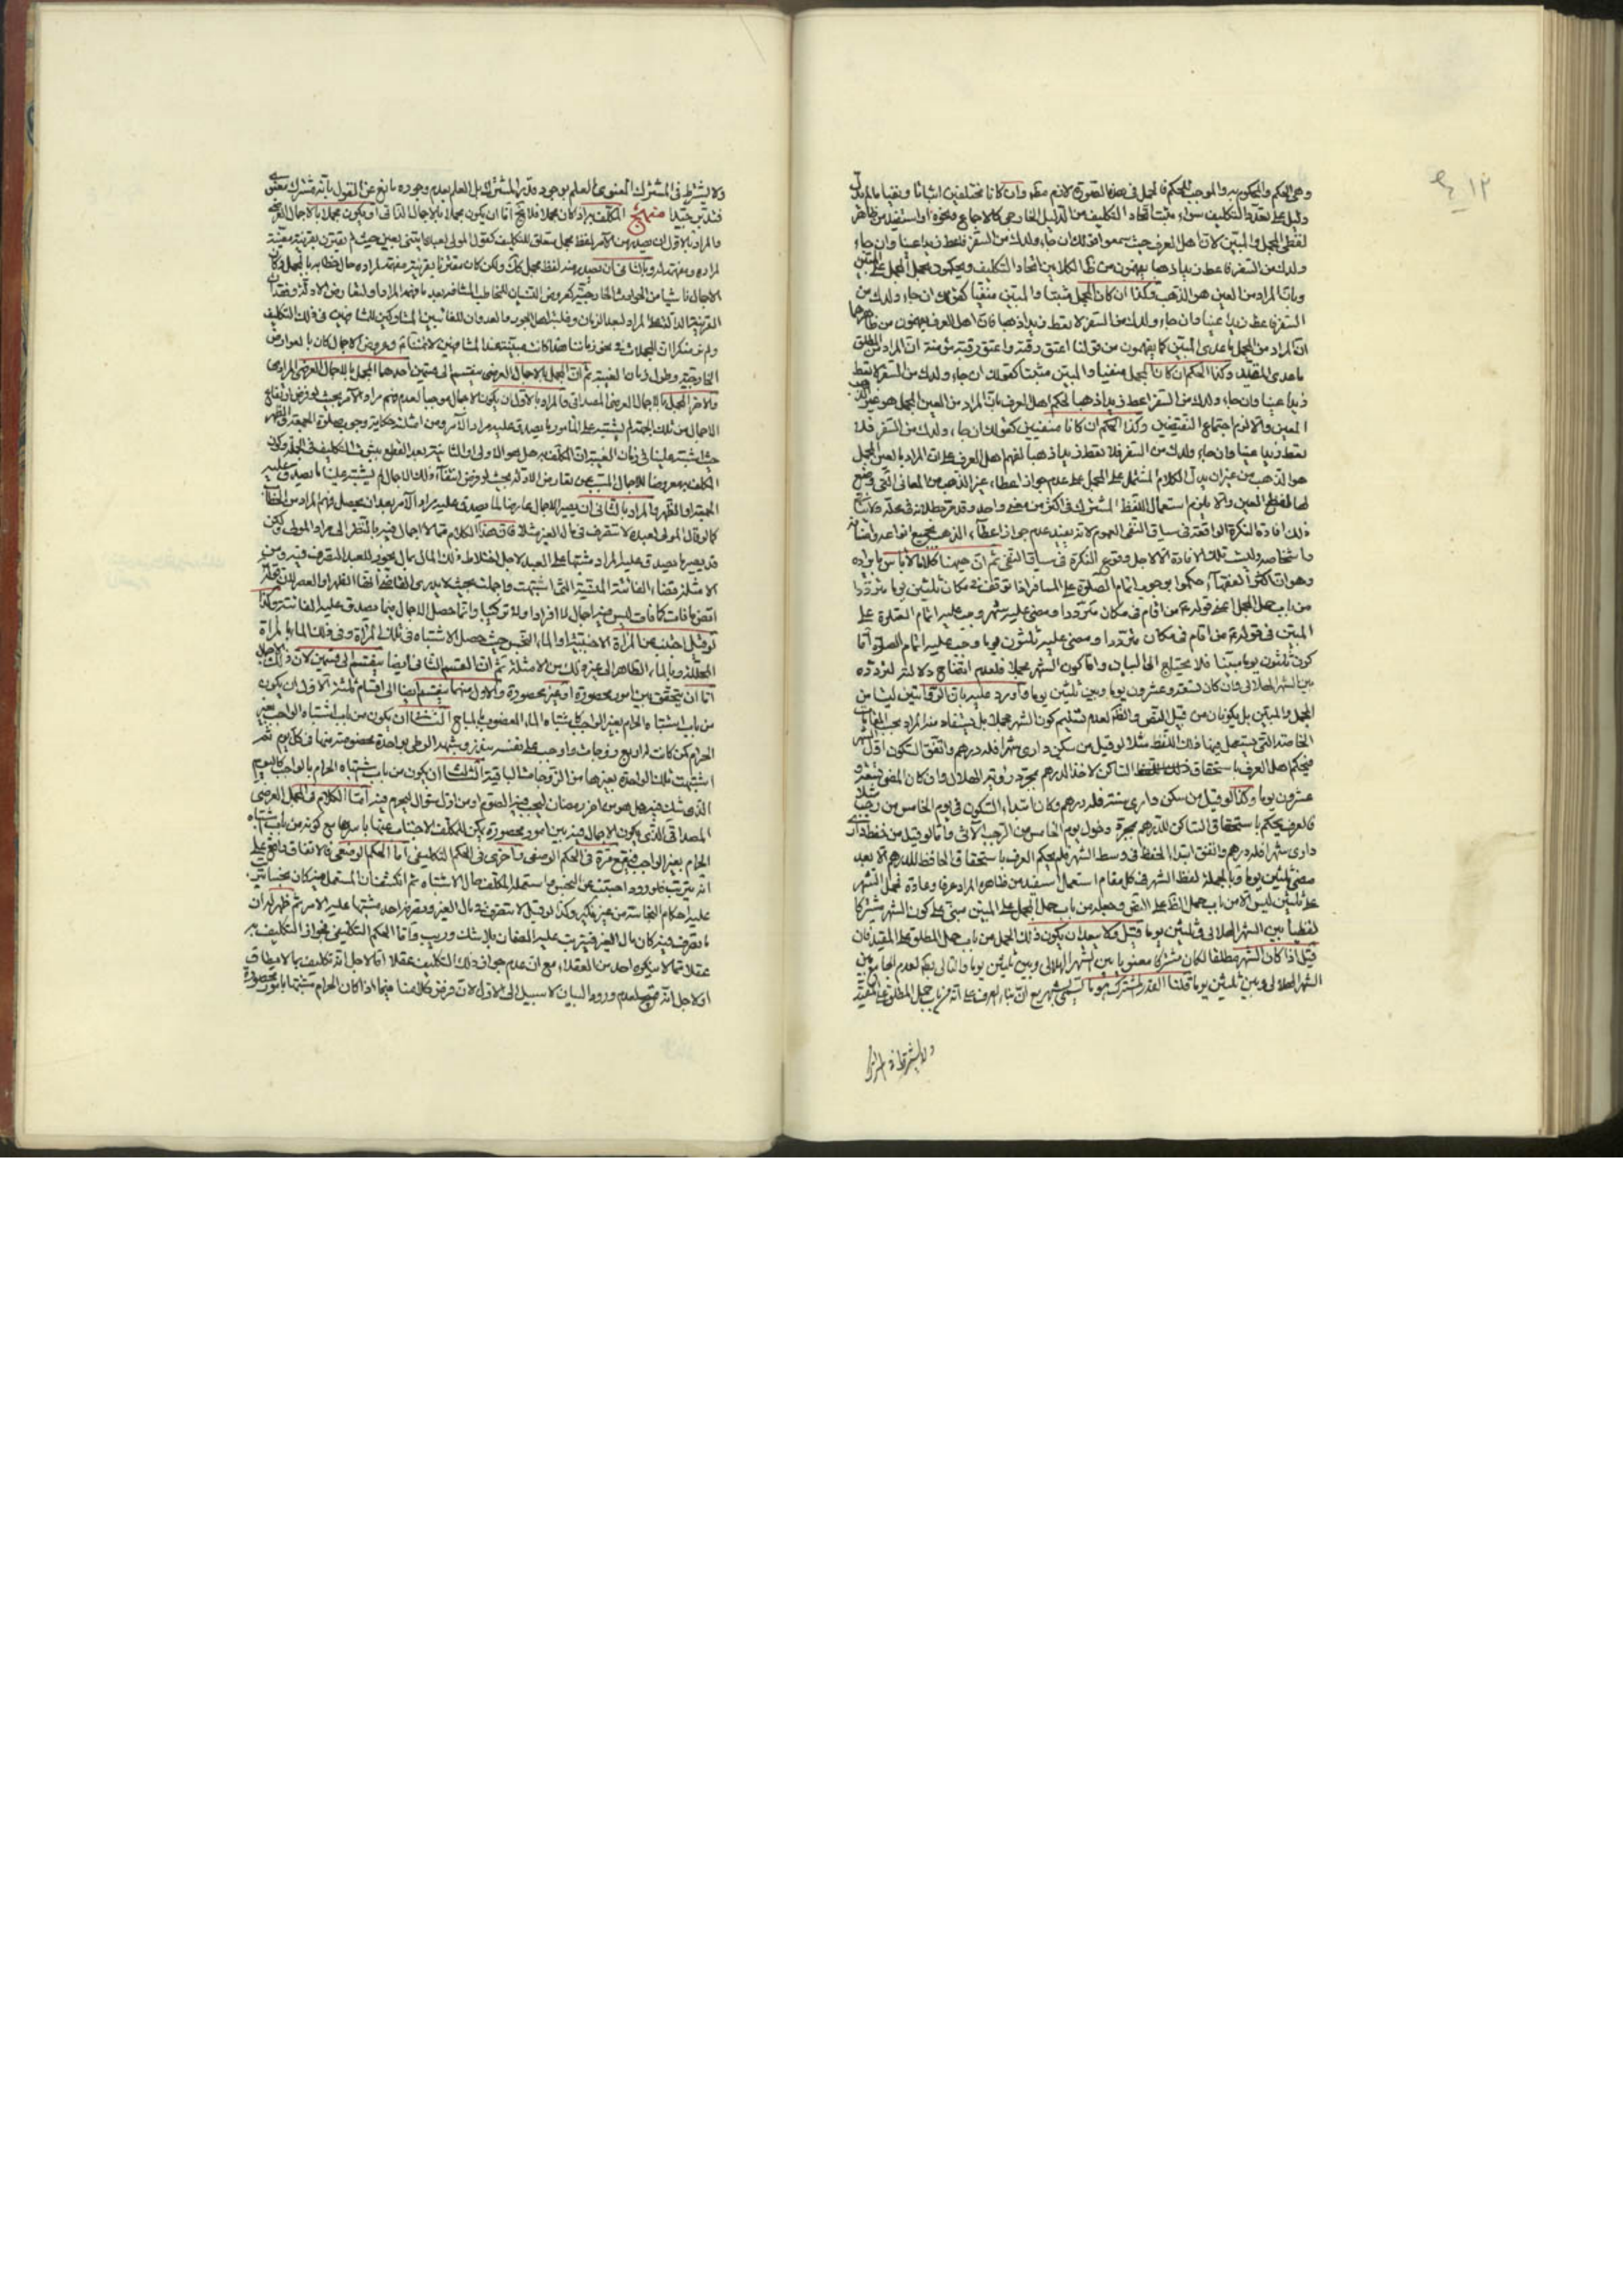 وهي الحكم والمحكوم به والموجب للحكم فالحمل في هذه الصورة لازم مطلقا وان كانا مختلفين اثباتا ونفيا مالم يدل
دليل على تعدد التكليف سواء ثبت اتحاد التكليف من الدليل الخارجي كالاجماع ونحوه او استفيد من ظاهر
لفظي المجمل والمبين لان اهل العرف حيث سمعوا قولك ان جاء ولدك من السفر فاعط زيدا عينا وان جاء
ولدك من السفر فاعط زيدا ذهبا يفهمون من الكلامين اتحاد التكليف ويحكمون بحمل المجمل على المبين
وبان المراد من العين هو الذهب وكذا ان كان المجمل مثبتا والمبين منفيا كقولك ان جاء ولدك من
السفر فاعط زيدا عينا وان جاء ولدك من السفر لا تعط زيدا ذهبا فان اهل العرف يفهمون من ظاهرها
ان المراد من المجمل ما عدى المبين كما يفهمون من قولنا اعتق رقبة واعتق رقبة مؤمنة ان المراد من المطلق
ما عدى المقيد وكذا الحكم ان كان المجمل منفيا والمبين مثبتا كقولك ان جاء ولدك من السفر لا تعط
زيدا عينا وان جاء ولدك من السفر اعط زيدا ذهبا لحكم اهل العرف بان المراد من العين المجمل هو غير الذهب
المعين والا لزم اجتماع النقيضين وكذا الحكم ان كانا منفيين كقولك ان جاء ولدك من السفر فلا
تعط زيدا عينا وان جاء ولدك من السفر فلا تعط زيدا ذهبا لفهم اهل العرف ان المراد بالعين المجمل
هو الذهب من غير ان يدل الكلام المشتمل على المجمل على عدم جواز اعطاء غير الذهب من المعاني التي وضع
لها لفظ العين والا يلزم استعمال اللفظ المشترك في اكثر من معنى واحد وقد مر بطلانه في محله ولا ينافي
ذلك افادة النكرة الواقعة في سياق النفي العموم لانه يفيد عدم جواز اعطاء الذهب بجميع انواعه واصنافه
واشخاصه وليست تلك الافادة الا لاجل وقوع النكرة في سياق النفي ثم ان هيهنا كلاما لا باس بايراده
وهو ان اكثر الفقهاء حكموا بوجوب اتمام الصلوة على المسافر اذا توقف في مكان ثلثين يوما مترددا
من باب حمل المجمل في قوله من اقام في مكان مترددا ومضى عليه شهر وجب عليه اتمام الصلوة على
المبين في قوله من اقام في مكان مترددا ومضى عليه ثلثون يوما وجب عليه اتمام الصلوة اما
كون ثلثون يوما مبينا فلا يحتاج الى البيان واما كون الشهر مجملا فلعدم اتضاح دلالته لتردده
بين الشهر الهلالي وان كان تسعة وعشرون يوما وبين ثلثين يوما واورد عليه بان الروايتين ليستا من
المجمل والمبين بل يكونان من قبيل النص والظاهر لعدم تسليم كون الشهر مجملا بل يستفاد منه المراد بحسب المقامات
الخاصة التي يستعمل فيها ذلك اللفظ مثلا لو قيل من سكن داري شهرا فله درهم واتفق السكون اول الشهر
فيحكم اهل العرف باستحقاق الساكن لاخذ الدرهم بمجرد رؤية الهلال وان كان المضي تسعة و
عشرون يوما وكذا لو قيل من سكن داري سنة فله درهم وكان ابتداء السكون في يوم الخامس من رجب مثلا
فالعرف يحكم باستحقاق الساكن للدرهم بمجرد دخول يوم الخامس من الرجب الاتي واما لو قيل من حفظ
داري شهرا فله درهم واتفق ابتداء الحفظ في وسط الشهر فلم يحكم العرف باستحقاق الحافظ للدرهم الا بعد
مضي ثلثين يوما وبالجملة لفظ الشهر في كل مقام استعمل استفيد من ظاهره المراد عرفا وعادة فحمل الشهر
على ثلثين ليس الا من باب حمل الظاهر على النص وجعله من باب حمل المجمل على المبين مبني على كون الشهر مشتركا
لفظيا بين الشهر الهلالي وثلثين يوما قيل ولا يبعد ان يكون ذلك الحمل من باب حمل المطلق على المقيد فان
قيل اذا كان الشهر مطلقا لكان مشتركا معنويا بين الشهر الهلالي وبين ثلثين يوما والتالي باطل لعدم الجامع بين
الشهر الهلالي وبين ثلثين يوما قلنا القدر المشترك هو ما يسمى بشهر مع ان بناء العرف على انه من باب حمل المطلق على المقيد
ولا يشترط في المشترك
ولا يشترط في المشترك المعنوي العلم بوجود قدر المشترك بل العلم بعدم وجوده مانع عن القول بانه مشترك معنوي
فتدبر جيدا منهج المكلف به اذا كان مجملا فلا يخ اما ان يكون مجملا بالاجمال الذاتي او يكون مجملا بالاجمال العرضي
والمراد بالاول ان يصدر من الآمر لفظ مجمل متعلق للتكليف كقول المولى لعبده ايتني بعين حيث لم يقترن بقرينة معينة
لمراده ومفهمة له وبالثاني ان يصدر منه لفظ مجمل كذلك ولكن كان مقترنا بقرينة مفهمة لمراده حال خطابه بالمجمل وكان
الاجمال ناشيا من الحوادث الخارجية كعروض النسيان للمخاطب المشافه بعد ما فهم المراد او لتعارض الادلة وفقدان
القرينة الدالة على المراد لبعد الزمان وغلبة اهل الجور والعدوان للغائبين المشاركين للحاضرين في ذلك التكليف
ولم ينكر ان المجملات في نحو زماننا هذا كانت مبينة عند المشافهين لائمتنا ع وعروض الاجمال كان بالعوارض
الخارجية وطول زمان الغيبة ثم ان المجمل بالاجمال العرضي ينقسم الى قسمين احدهما المجمل بالاجمال العرضي المرادي
والاخر المجمل بالاجمال العرضي المصداقي والمراد بالاول ان يكون الاجمال موجبا لعدم فهم مراد الآمر بحيث لو فرض ارتفاع
الاجمال من تلك الجهة لم يشتبه على المأمور ما يصدق عليه مراد الآمر ومن امثلته حكاية وجوب صلوة الجمعة والظهر
حيث اشتبه علينا في زمان الغيبة ان المكلف به هل هو الاولى او الثانية بعد القطع بثبوت التكليف في الجملة وكان
المكلف به معروضا للاجمال المسبب عن تعارض الادلة بحيث لو فرض انتفاء ذلك الاجمال لم يشتبه علينا ما يصدق عليه
الجمعة او الظهر والمراد بالثاني ان يصير الاجمال عارضا لما يصدق عليه مراد الآمر بعد ان يحصل فهم المراد من الخطاب
كما لو قال المولى لعبده لا تتصرف في مال الغير مثلا فان هذا الكلام مما لا اجمال فيه بالنظر الى مراد المولى ولكن
قد يصير ما يصدق عليه المراد مشتبها على العبد لاجل اختلاط ذلك المال بمال يجوز للعبد التصرف فيه ومن
الامثلة قضاء الفائتة المنسية التي اشتبهت واجملت بحيث لا يدري انها الظهر او العصر لان قوله
اقض ما فات كما فات ليس فيه اجمال لا افرادا ولا تركيبا وانما حصل الاجمال فيما يصدق عليه الفائتة وكذا
لو قيل اجتنب عن المرأة الاجنبية او الماء النجس حيث حصل الاشتباه في تلك المرأة وفي ذلك الماء بالمرأة
المحللة وبالماء الطاهر الى غير ذلك من الامثلة ثم ان القسم الثاني ايضا ينقسم الى قسمين لان ذلك الاجمال
اما ان يتحقق بين امور محصورة او غير محصورة والاول منهما ينقسم ايضا الى اقسام ثلثة الاول ان يكون
من باب اشتباه الحرام بغير الواجب كاشتباه الماء المغصوب بالمباح الثاني ان يكون من باب اشتباه الواجب بغير
الحرام كمن كانت له اربع زوجات واوجب على نفسه الوطي بواحدة مخصوصة منها في كل يوم ثم
اشتبهت تلك الواحدة بغيرها من الزوجات الباقية الثالث ان يكون من باب اشتباه الحرام بالواجب كاليوم
الذي شك فيه هل هو من اخر رمضان ليجب فيه الصوم او من اول شوال ليحرم فيه اما الكلام في المجمل العرضي
المصداقي الذي يكون الاجمال فيه بين امور محصورة يمكن للمكلف الاجتناب عنها باسرها مع كونه من باب اشتباه
الحرام بغير الواجب فيقع مرة في الحكم الوضعي واخرى في الحكم التكليفي اما الحكم الوضعي فالاتفاق واقع على
انه يترتب فلو ورد اجتنب عن النجس واستعمله المكلف حال الاشتباه ثم انكشف ان المستعمل فيه كان نجسا يترتب
عليه احكام النجاسة من غير نكير وكذا لو قيل لا تتصرف في مال الغير وتصرف احد مشتبها عليه الامر ثم ظهر له ان
ما تصرف فيه كان مال الغير فيترتب عليه الضمان بلا شك وريب واما الحكم التكليفي فجواز التكليف به
عقلا مما لا ينكره احد من العقلاء مع ان عدم جواز ذلك التكليف عقلا اما لاجل انه تكليف بما لا يطاق
او لاجل انه قبيح لعدم ورود البيان لا سبيل الى الاول لان فرض كلامنا فيما اذا كان الحرام مشتبها بامور محصورة